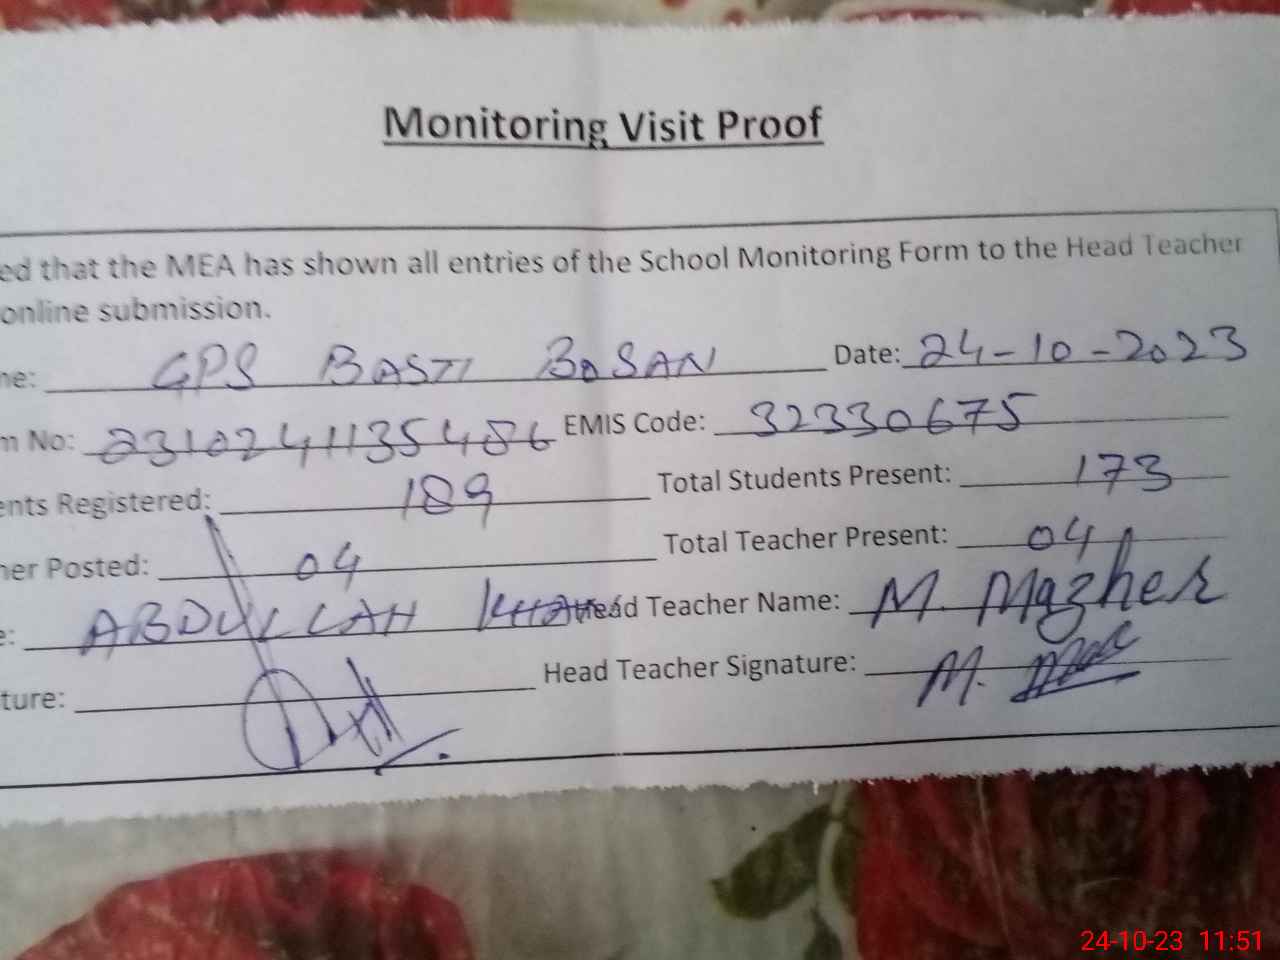 Monitoring Visit Proof
ed that the MEA has shown all entries of the School Monitoring Form to the Head Teacher
online submission.
me: GPS BASTI BOSAN Date: 24-10-2023
m No: 23102411135486 EMIS Code: 32330675
ents Registered: 189 Total Students Present: 173
her Posted: 04 Total Teacher Present: 04
e: ABDULLAH KHAN Head Teacher Name: M. Mazher
ture: Head Teacher Signature: M.
24-10-23 11:51